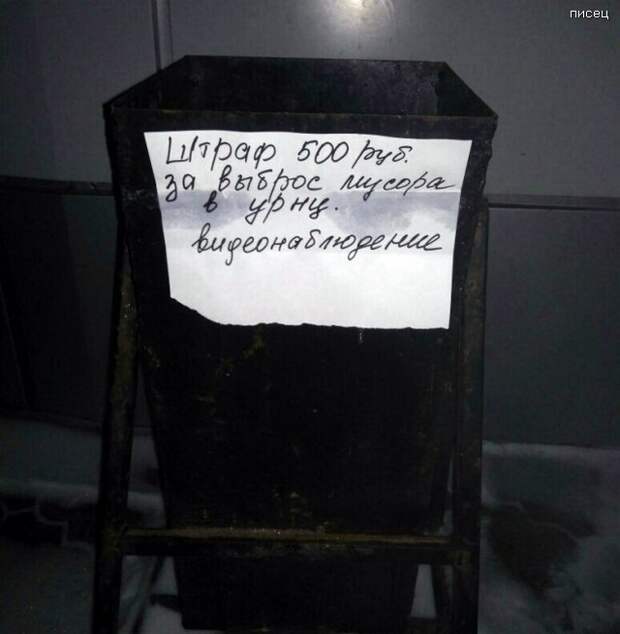 писец
Штраф 500 руб.
за выброс мусора
в урну.
видеонаблюдение